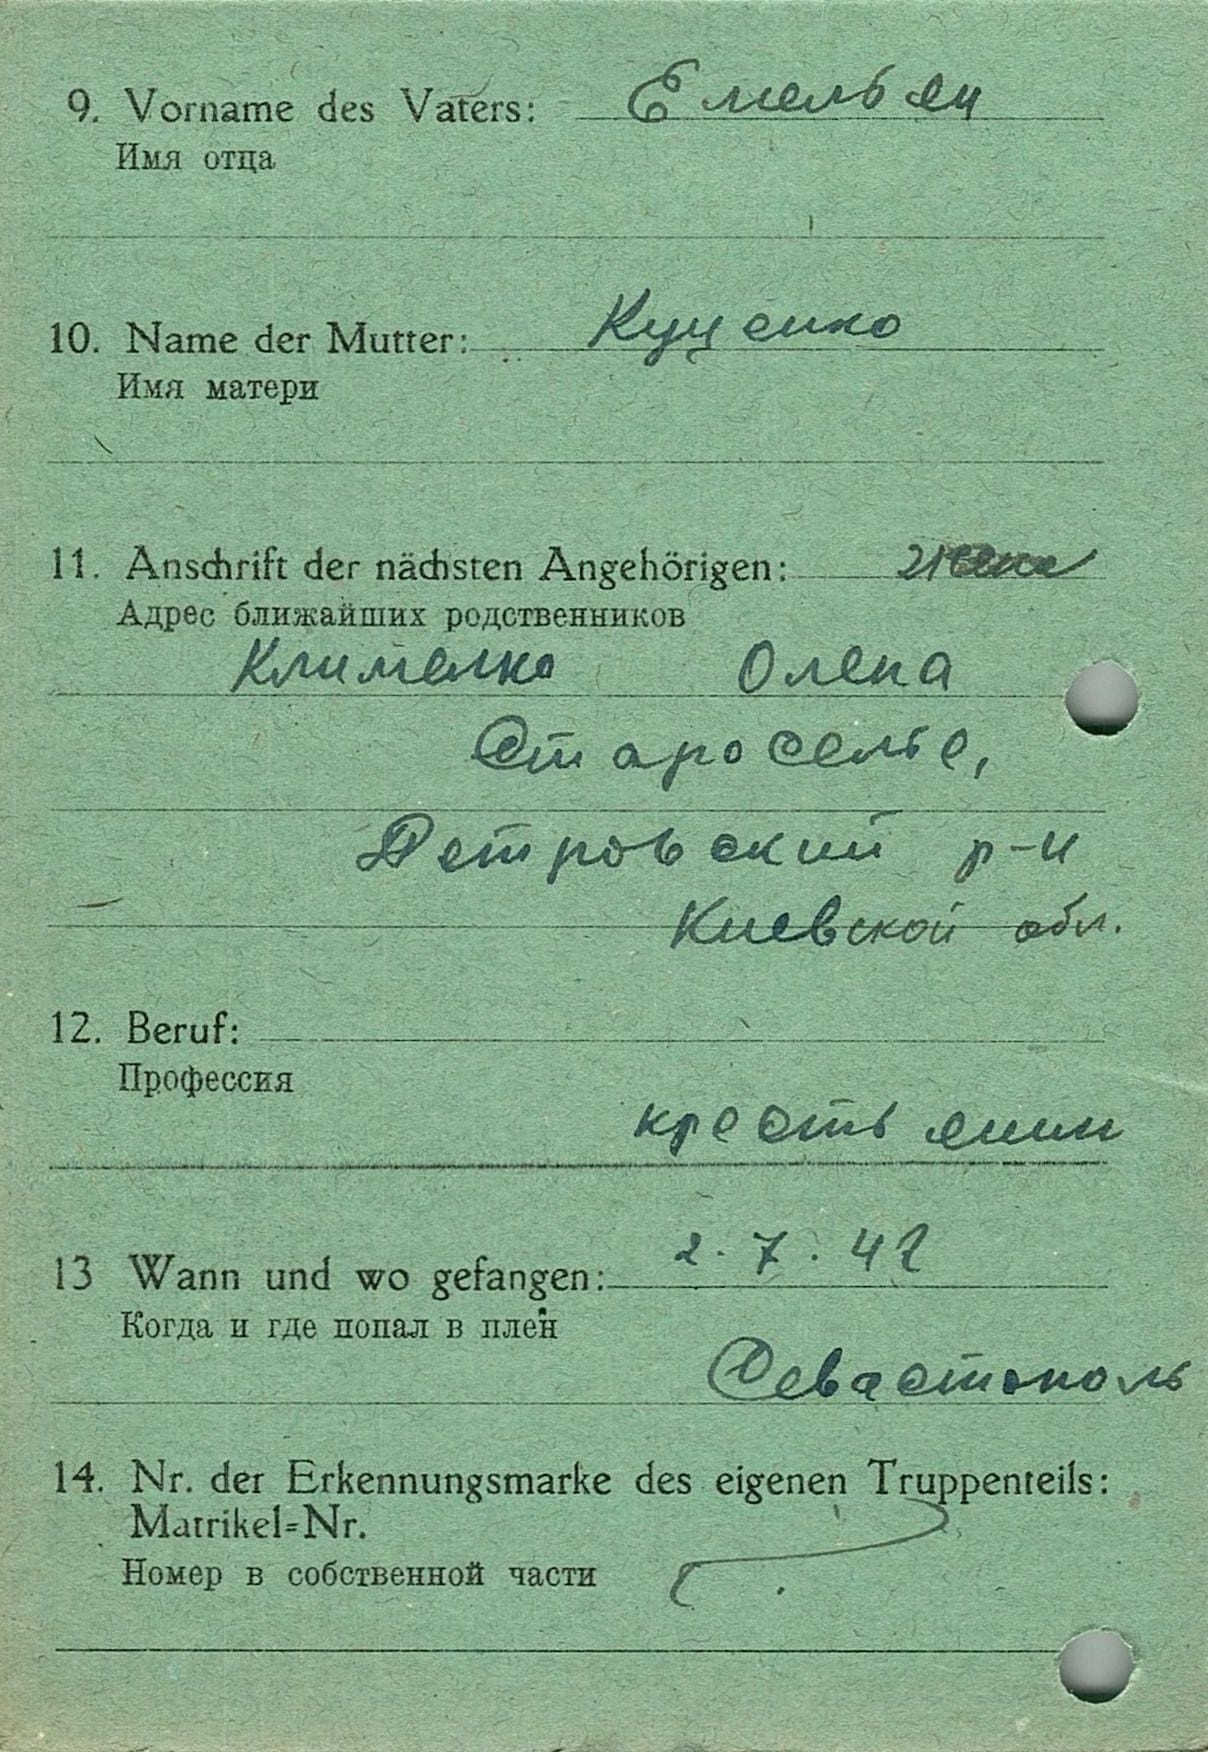 9. Vorname des Vaters: Емельян
Имя отца
10. Name der Mutter: Куценко
Имя матери
11. Anschrift der nächsten Angehörigen: жена
Адрес ближайших родственников
Клименко Олена
Староселье,
Петровский р-н
Киевской обл.
12. Beruf:
Профессия
крестьянин
13 Wann und wo gefangen: 2.7.42
Когда и где попал в плен
Севастополь
14. Nr. der Erkennungsmarke des eigenen Truppenteils:
Matrikel=Nr.
Номер в собственной части